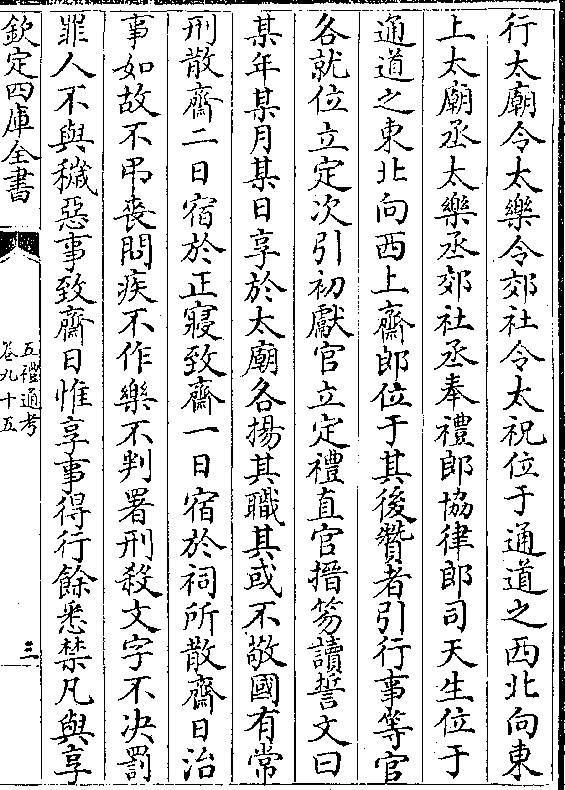 行太廟令太樂令郊社令太祝位于通道之西北向東
上太廟丞太樂丞郊社丞奉禮郎協律郎司天生位于
通道之東北向西上齋郎位于其後贊者引行事等官
各就位立定次引初獻官立定禮直官搢笏讀誓文曰
某年某月某日享於太廟各揚其職其或不敬國有常
刑散齋二日宿於正寢致齋一日宿於祠所散齋日治
事如故不弔喪問疾不作樂不判署刑殺文字不决罰
罪人不與穢惡事致齋日惟享事得行餘悉禁凡與享
欽定四庫全書
五禮通考
卷九十五
三